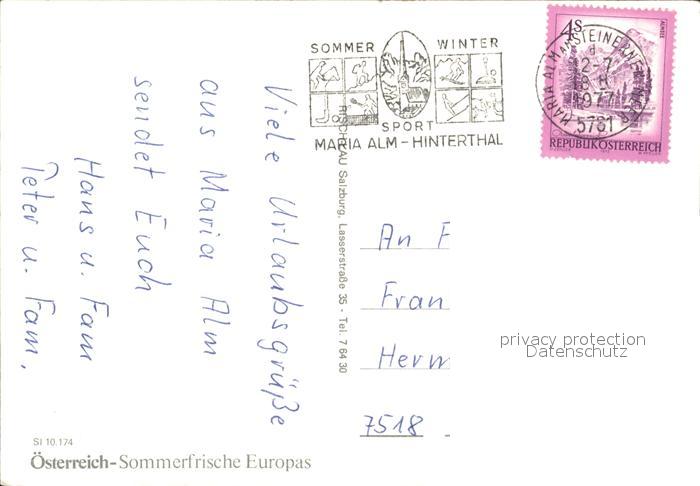 SOMMER WINTER
SPORT
MARIA ALM - HINTERTHAL
4S
ALMSEE
MARIA ALM AM STEINERNEN MEER
1977
5761
REPUBLIK ÖSTERREICH
Viele Urlaubsgrüße
aus Maria Alm
sendet Euch
Hans u. Fam
Peter u. Fam.
Salzburg, Lasserstraße 35 - Tel. 7 64 30
An F
Fran
Herm
7518
privacy protection
Datenschutz
SI 10.174
Österreich-Sommerfrische Europas